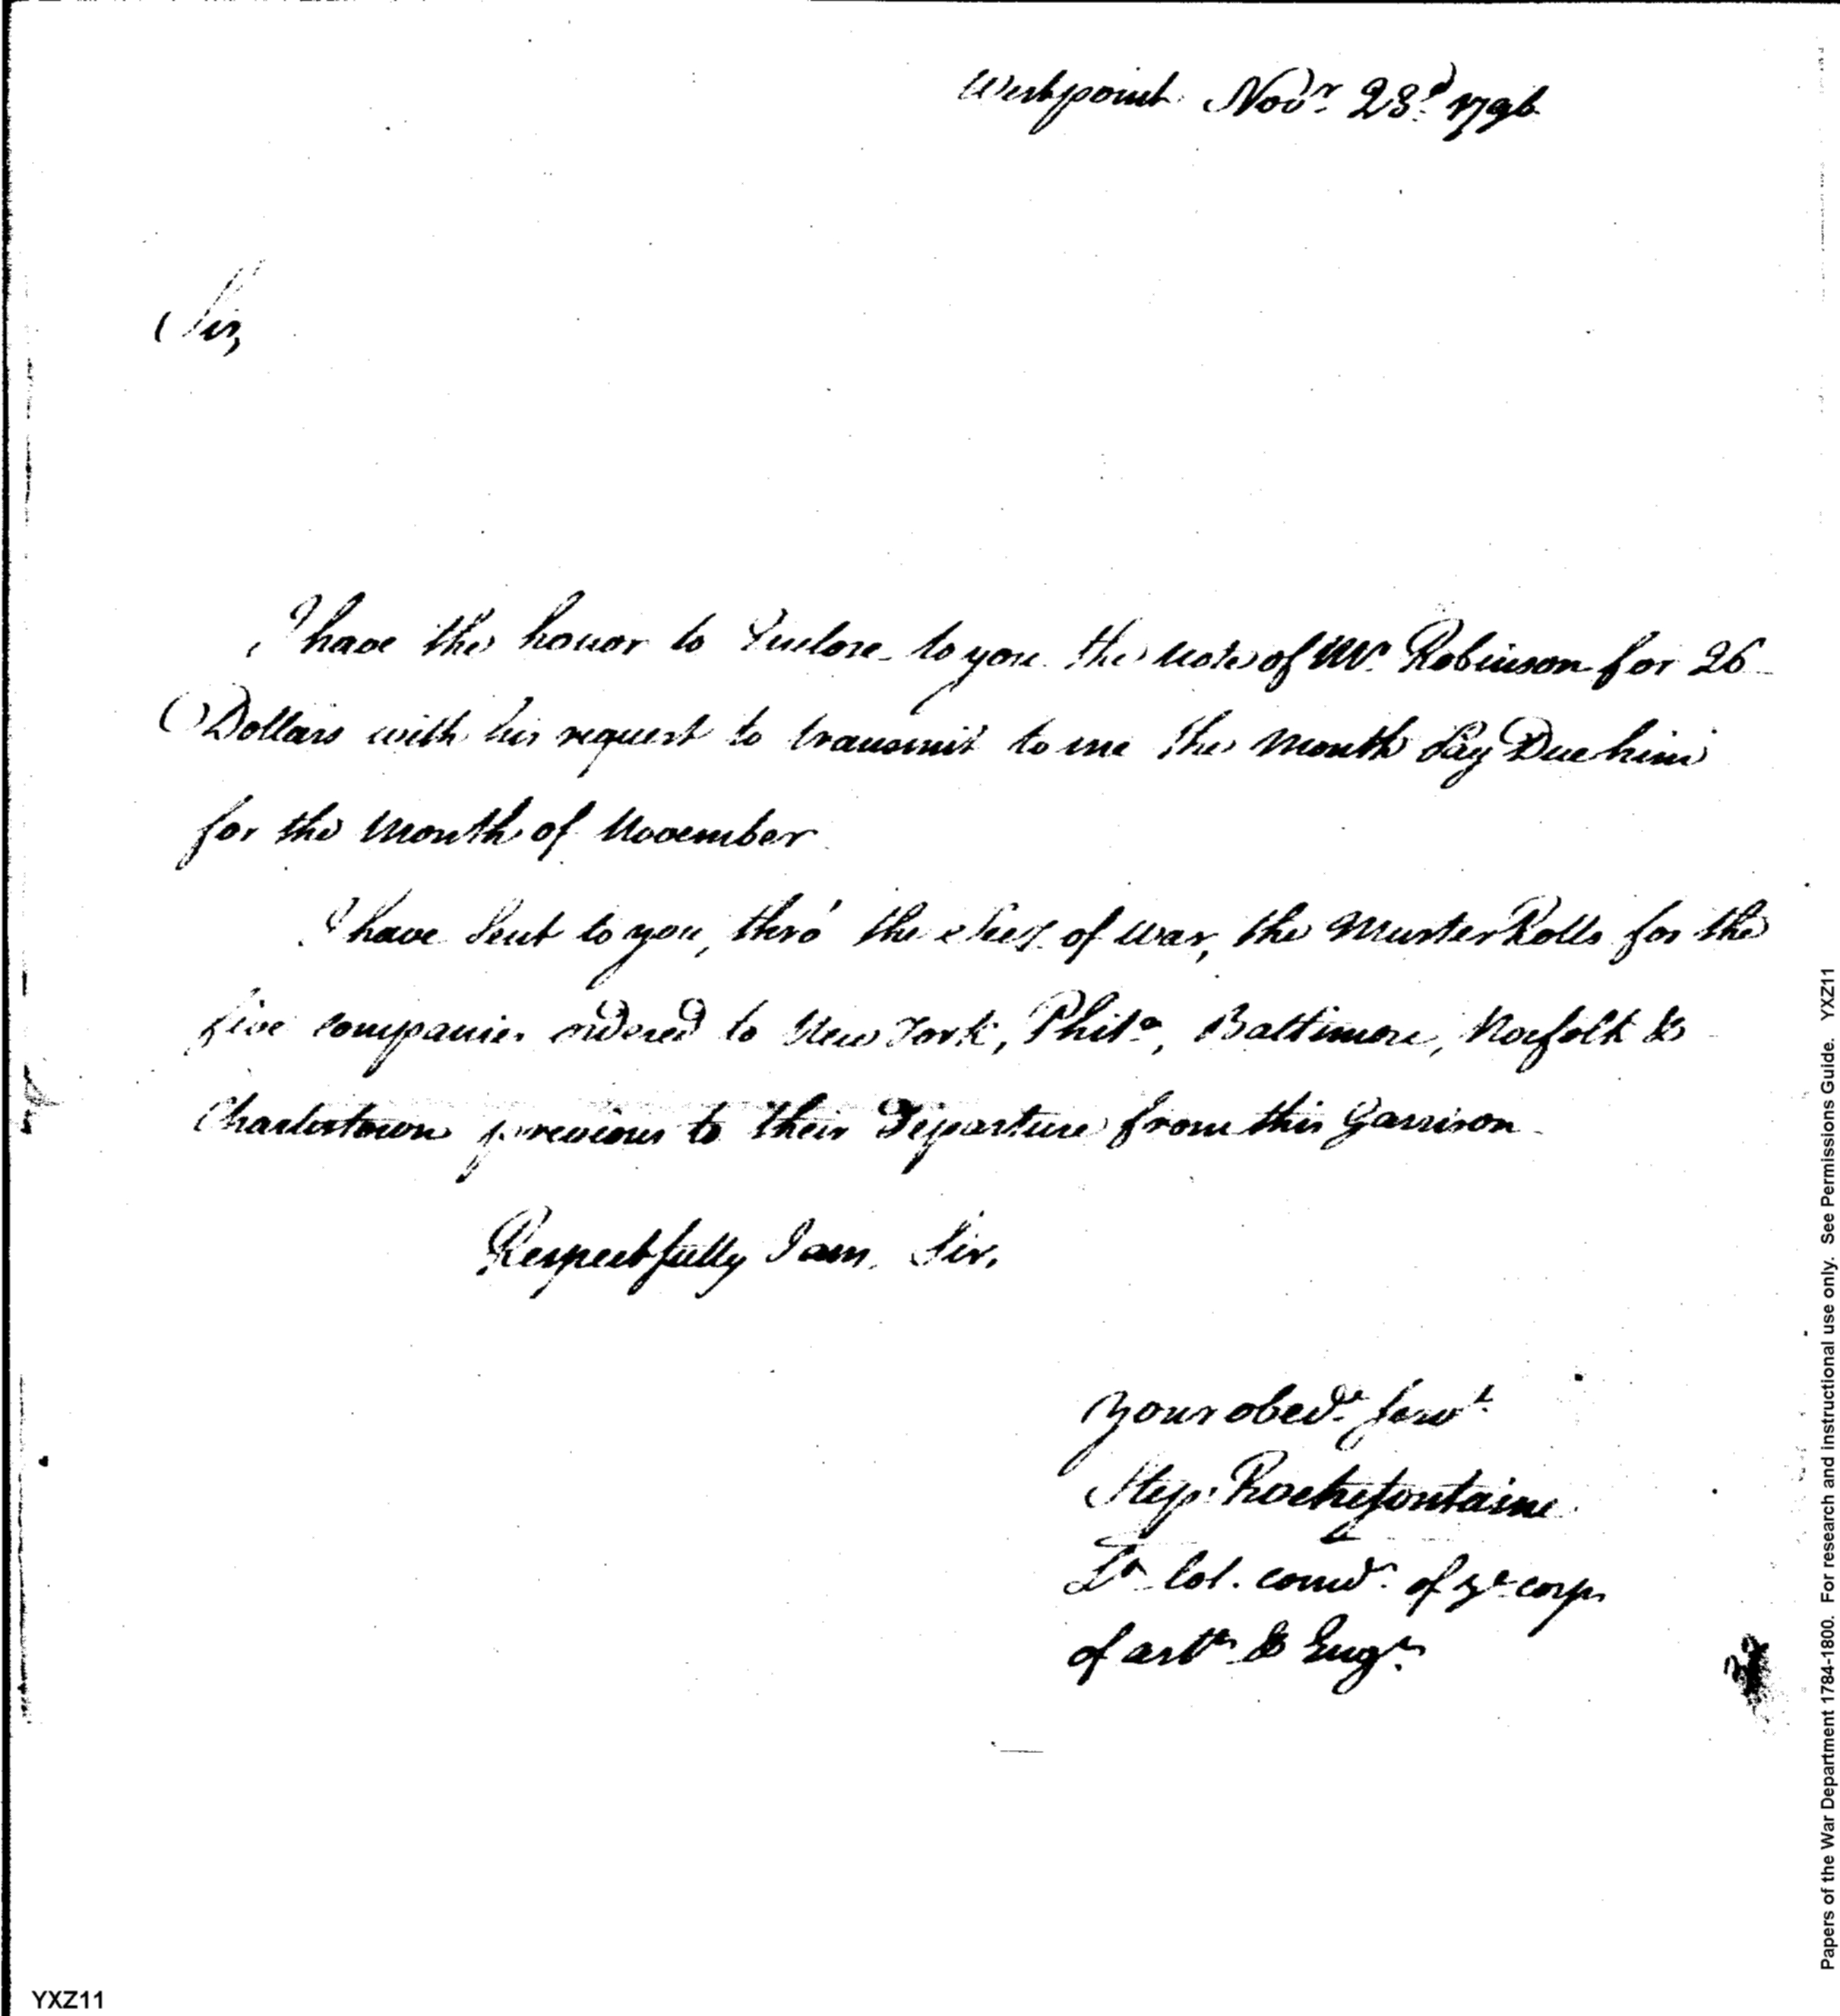 Westpoint Novr. 23d. 1796
Sir,
I have the honor to Inclose to you the note of Mr. Robinson for 26
Dollars with his request to transmit to me the Month Pay Due him
for the Month of November
I have Sent to you, thro' the Secy. of war, the Muster Rolls for the
five companies ordered to New York, Phila., Baltimore, Norfolk &
Charlestown previous to their Departure from this Garrison
Respectfully I am, Sir,
Your obedt. Servt.
Step. Rochefontaine
Lt. Col. comdt. of ye corps
of artts. & Engrs.
YXZ11
Papers of the War Department 1784-1800. For research and instructional use only. See Permissions Guide. YXZ11